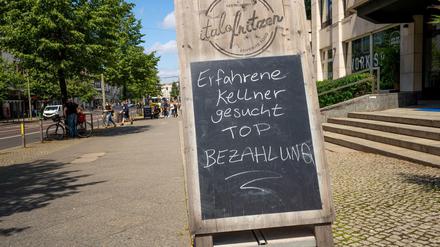 italofritzen
Erfahrene
Kellner
gesucht
TOP
BEZAHLUNG